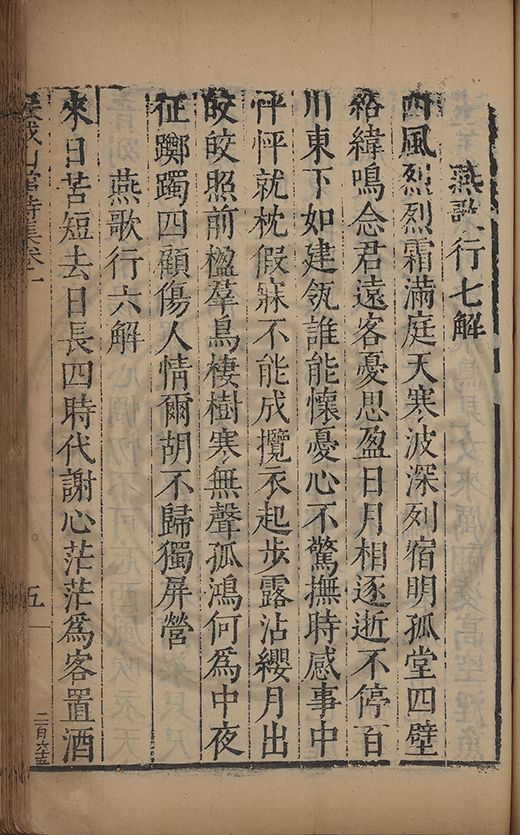 燕歌行七解
西風烈烈霜滿庭天寒波深列宿明孤堂四壁
絡緯鳴念君遠客憂思盈日月相逐逝不停百
川東下如建瓴誰能懷憂心不驚撫時感事中
怦怦就枕假寐不能成攬衣起步露沾纓月出
皎皎照前楹羣鳥棲樹寒無聲孤鴻何為中夜
征躑躅四顧傷人情爾胡不歸獨屏營
燕歌行六解
來日苦短去日長四時代謝心茫茫爲客置酒
山館詩集卷一
五
二百六十五